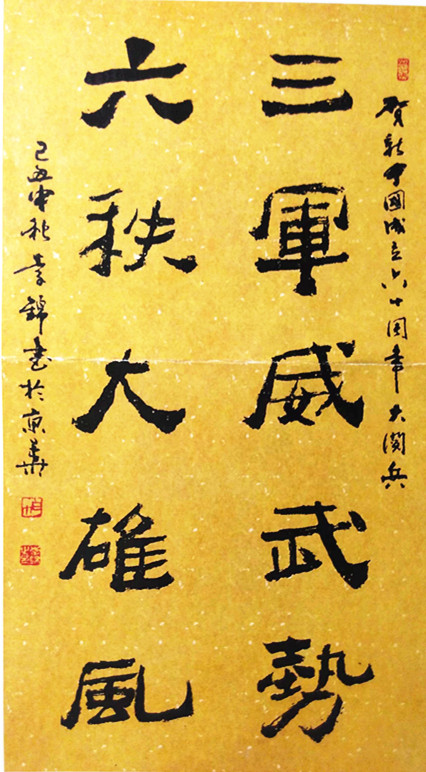 贺新中国成立六十周年大阅兵
三軍威武勢
六秩大雄風
己丑中秋李錦書於京華